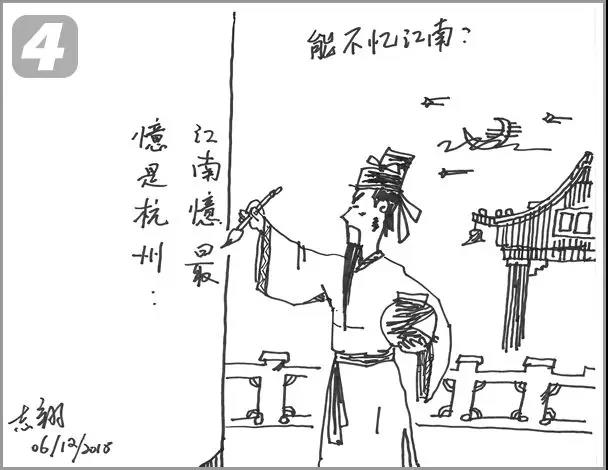 4
能不忆江南?
江南憶最
憶是杭州:
志翔
06/12/2018